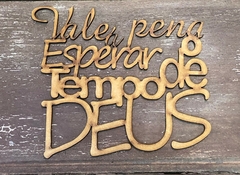 Vale a pena
Esperar o
Tempo de
DEUS